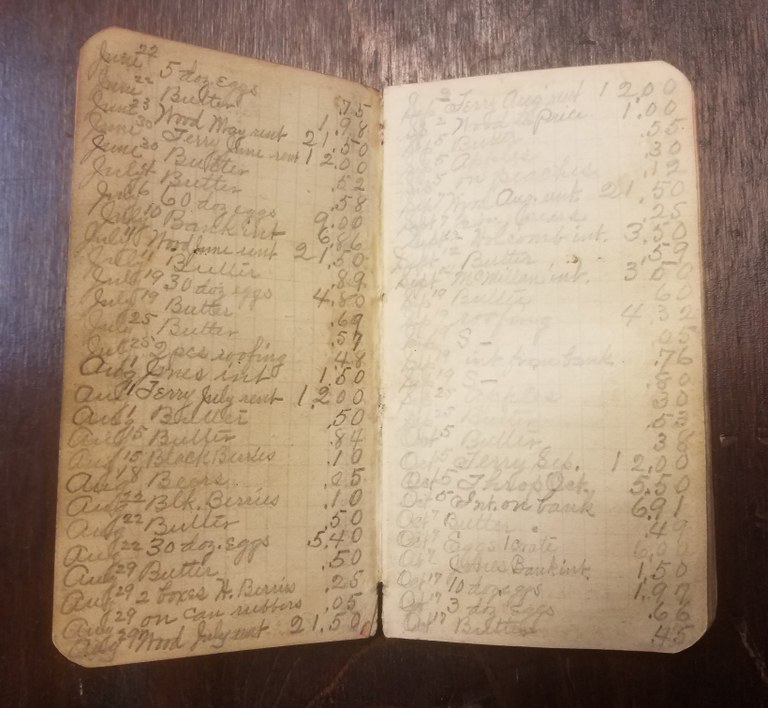 June 22 5 doz eggs .75
June 22 Butter 1.98
June 23 Wood May rent 21.50
June 30 Terry June rent 12.00
June 30 Butter .52
July 4 Butter .58
July 6 60 doz eggs 9.00
July 10 Bank int 6.86
July 11 Wood June rent 21.50
July 11 Butter .89
July 19 30 doz eggs 4.80
July 19 Butter .69
July 25 Butter .59
July 25 2 pcs roofing .48
Aug 1 Jones int 1.50
Aug 1 Terry July rent 12.00
Aug 1 Butter .50
Aug 15 Butter .84
Aug 15 Black Buries .10
Aug 18 .05
Aug 22 Blk. Berries .10
Aug 22 Butter .50
Aug 22 30 doz. eggs 5.40
Aug 29 Butter .50
Aug 29 2 boxes H. Berris .25
Aug 29 on can rubbers .05
Aug 29 Wood July rent 21.50
Sept 2 Terry Aug rent 12.00
Sept 2 Wood 1.00
Sept 5 Butter .55
Sept 5 .30
Sept 5 on Peaches .12
Sept 7 Wood Aug rent 21.50
Sept 7 .25
Sept 12 Holcomb int. 3.50
Sept 12 Butter .59
Sept McMillan int. 3.00
19 Butter .60
roofing 4.32
S— .05
19 int from bank .76
S—
25
Oct 5 Butter .38
Oct 5 Terry Sep. 12.00
Oct 5 Throop Oct. 5.50
Oct 5 Int. on bank 6.91
Oct 7 Butter .49
Oct 7 Eggs 1 crate 6.00
Oct 7 Jones Bank int. 1.50
Oct 17 10 doz eggs 1.97
Oct 17 3 doz eggs .66
Oct 17 Butter .45